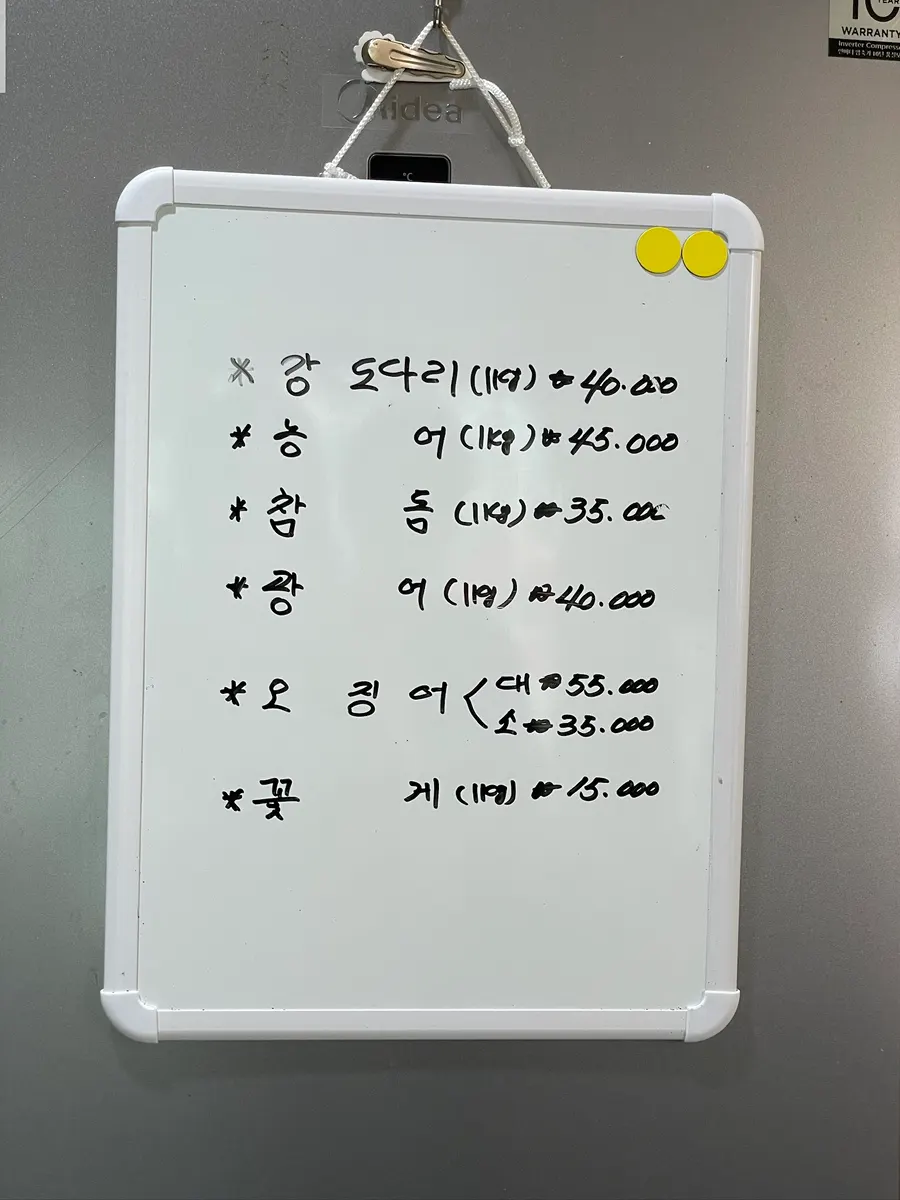 10 YEAR
WARRANTY
Inverter Compress
Midea
℃
* 강 도다리 (1kg) ₩ 40.000
* 농 어 (1kg) ₩ 45.000
* 참 돔 (1kg) ₩ 35.000
* 광 어 (1kg) ₩ 40.000
* 오 징 어 < 대 ₩ 55.000
소 ₩ 35.000
* 꽃 게 (1kg) ₩ 15.000